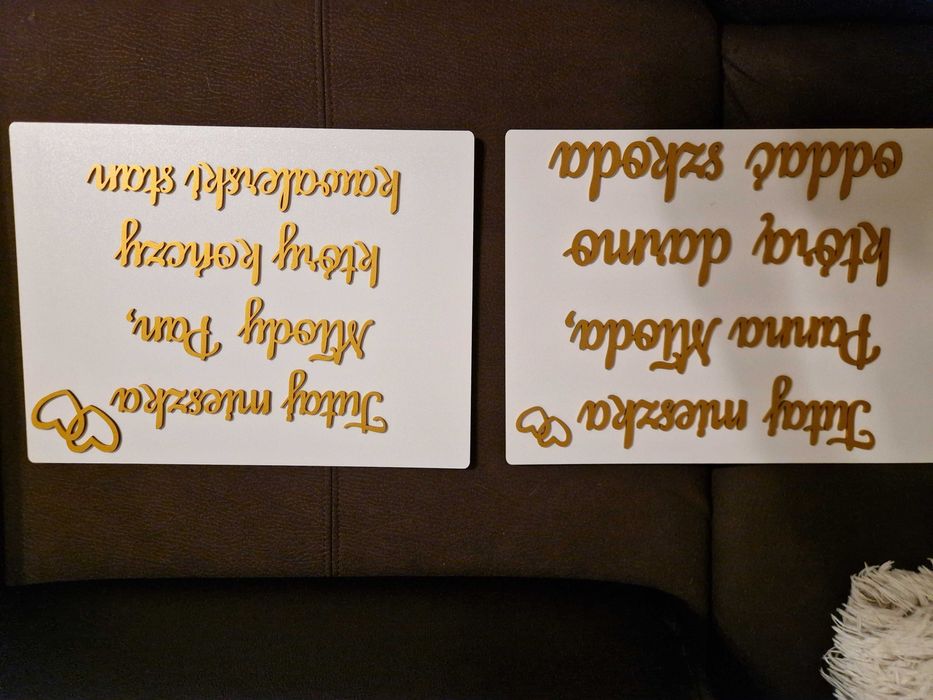 Tutaj mieszka
Panna Młoda,
którą darmo
oddać szkoda
Tutaj mieszka
Młody Pan,
który kończy
kawalerski stan